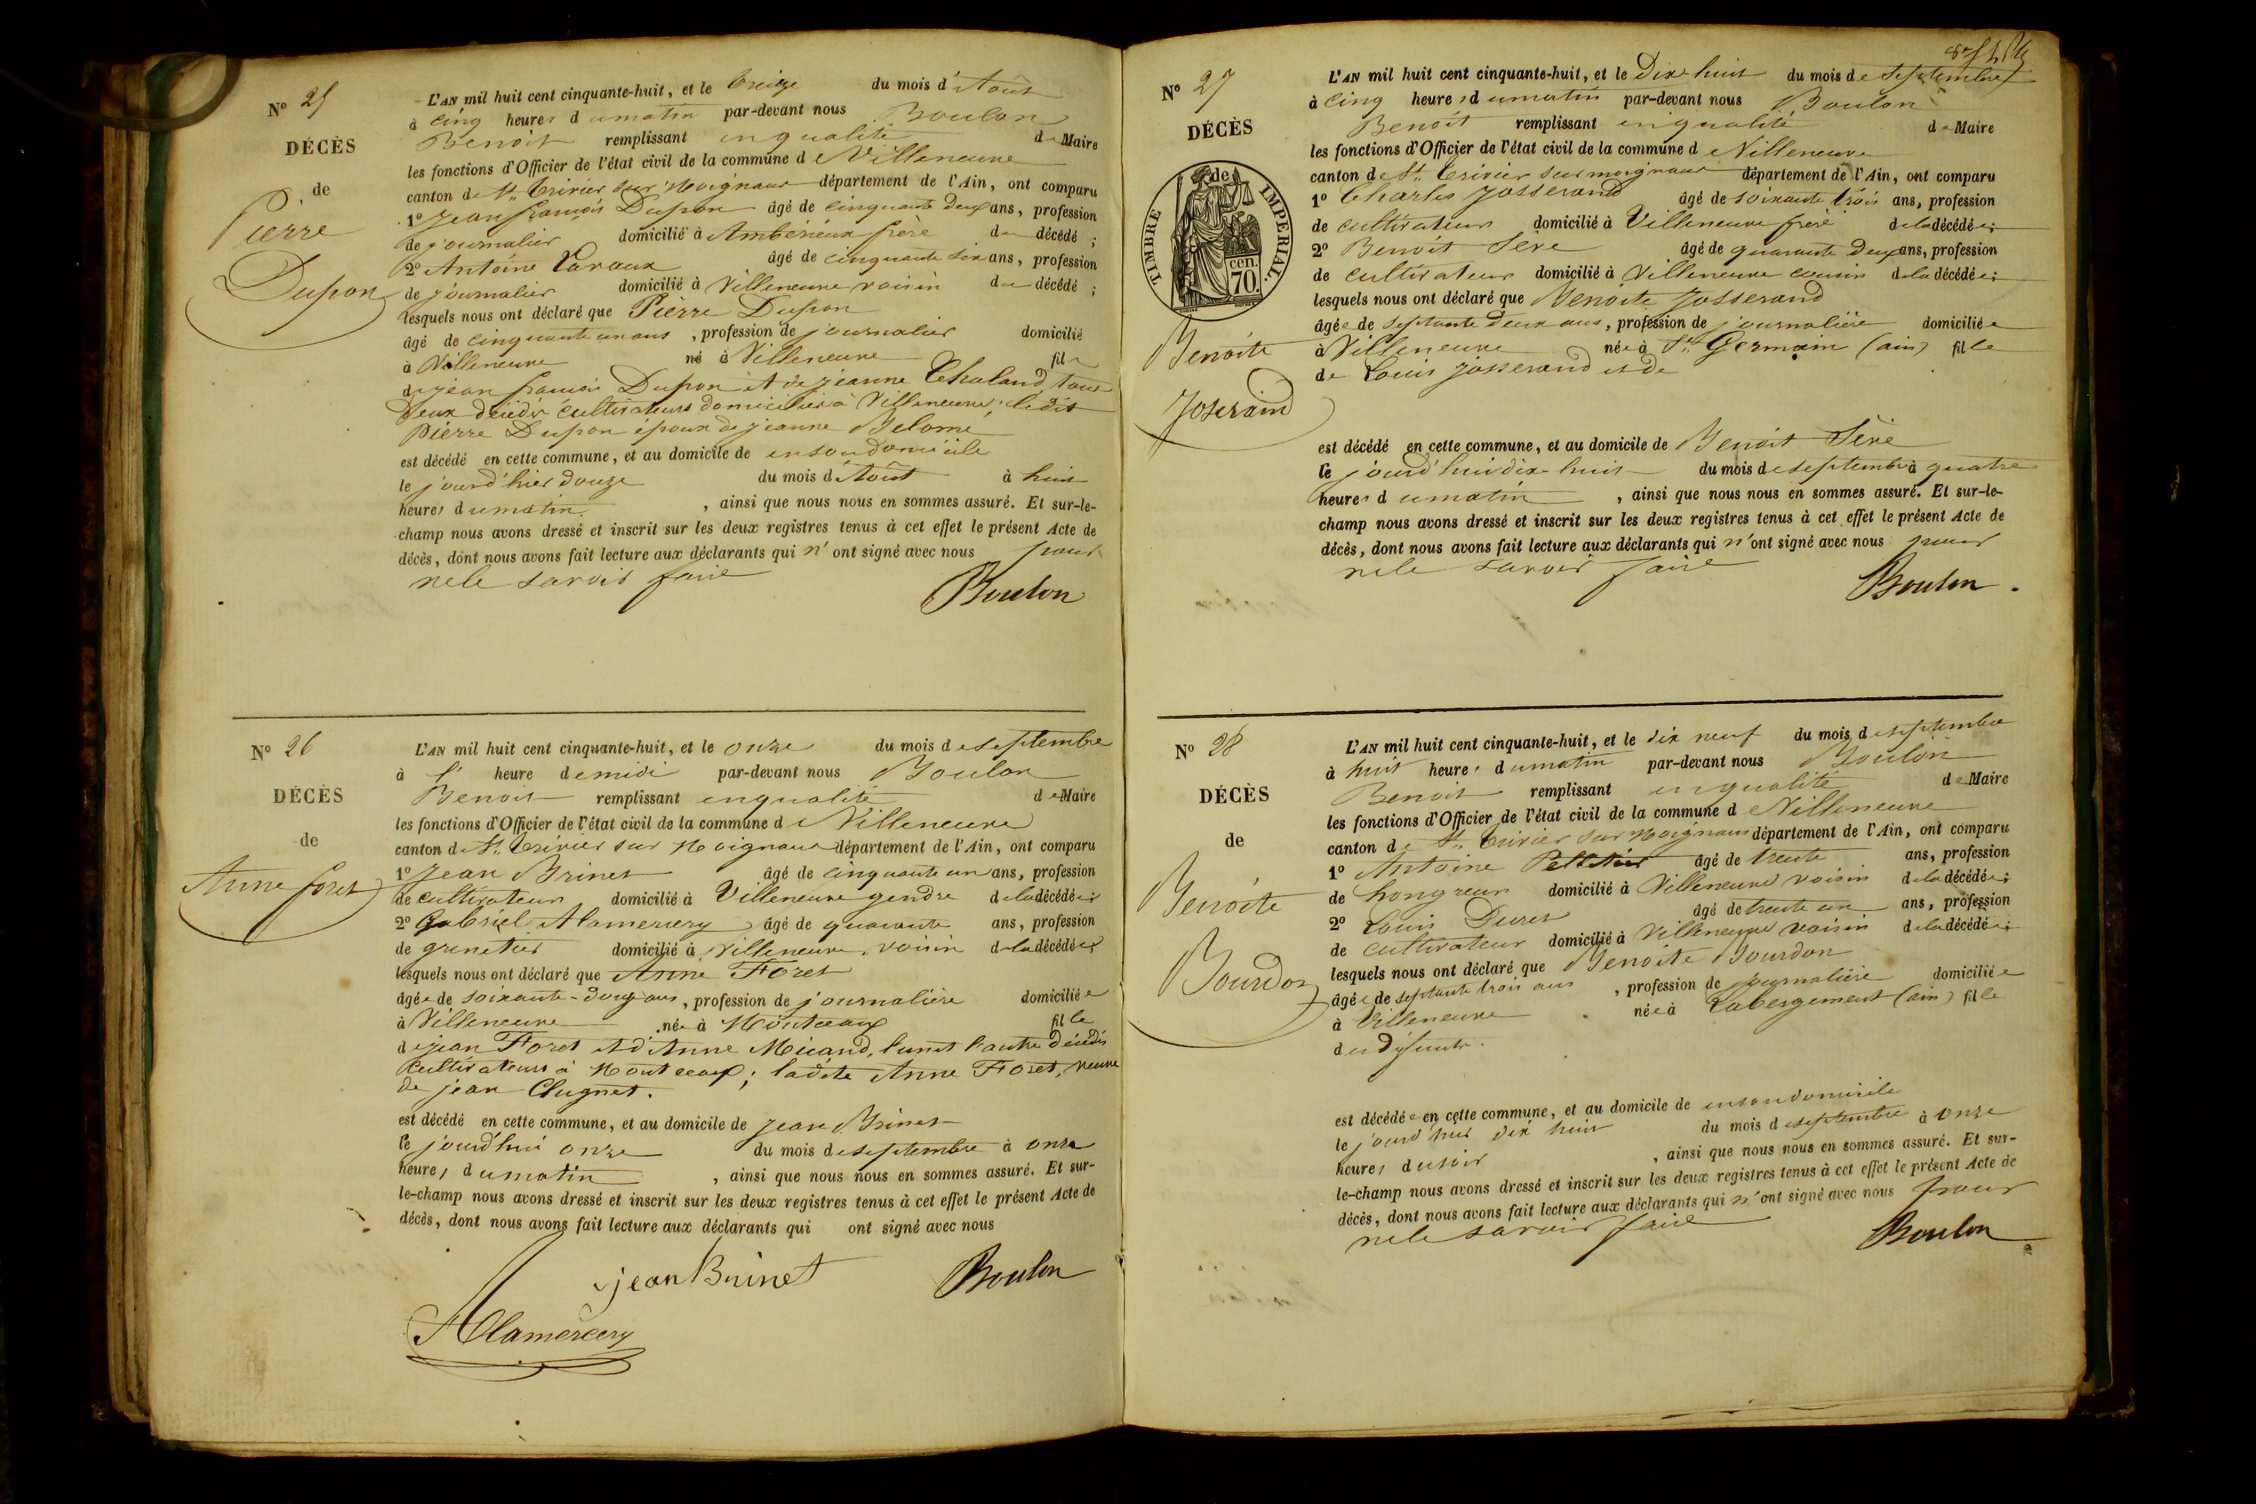 N° 25
DÉCÈS
de
Pierre
Dupon
L'AN mil huit cent cinquante-huit, et le treize du mois d'Août
à cinq heures du matin par-devant nous Boulon
Benoit remplissant en qualité de Maire
les fonctions d'Officier de l'état civil de la commune de Villeneuve
canton de St. Trivier sur Moignans département de l'Ain, ont comparu
1° Jean françois Dupon âgé de cinquante deux ans, profession
de journalier domicilié à Ambérieux frère du décédé ;
2° Antoine âgé de cinquante six ans, profession
de journalier domicilié à Villeneuve voisin du décédé ;
lesquels nous ont déclaré que Pierre Dupon
âgé de cinquante un ans, profession de journalier domicilié
à Villeneuve né à Villeneuve fils
de jean françois Dupon et de jeanne Chaland, tous
deux décédés cultivateurs domiciliés à Villeneuve; ledit
Pierre Dupon époux de jeanne Belome
est décédé en cette commune, et au domicile de en son domicile
le jourd'hier douze du mois d'Août à huit
heures du matin, ainsi que nous nous en sommes assuré. Et sur-le-
champ nous avons dressé et inscrit sur les deux registres tenus à cet effet le présent Acte de
décès, dont nous avons fait lecture aux déclarants qui n'ont signé avec nous pour
ne le savoir faire
Boulon
N° 26
DÉCÈS
de
Anne foret
L'AN mil huit cent cinquante-huit, et le onze du mois de septembre
à l' heure de midi par-devant nous Boulon
Benoit remplissant en qualité de Maire
les fonctions d'Officier de l'état civil de la commune de Villeneuve
canton de St. Trivier sur Moignans département de l'Ain, ont comparu
1° Jean Brinet âgé de cinquante un ans, profession
de cultivateur domicilié à Villeneuve gendre de la décédée ;
2° Gabriel Alamercery âgé de quarante ans, profession
de grenetier domicilié à Villeneuve, voisin de la décédée
lesquels nous ont déclaré que Anne Foret
âgée de soixante-douze ans, profession de journalière domiciliée
à Villeneuve née à Montceaux fille
de jean Foret et d'Anne Micand, l'un et l'autre décédés
cultivateurs à Montceaux; ladite Anne Foret, veuve
de jean Clugnet.
est décédé en cette commune, et au domicile de jean Brinet
le jourd'hui onze du mois de septembre à onze
heures du matin, ainsi que nous nous en sommes assuré. Et sur-
le-champ nous avons dressé et inscrit sur les deux registres tenus à cet effet le présent Acte de
décès, dont nous avons fait lecture aux déclarants qui ont signé avec nous
jean Brinet Boulon
Alamercery
N° 27
DÉCÈS
de
TIMBRE IMPÉRIAL.
cen. 70.
Benoite
Josserand
L'AN mil huit cent cinquante-huit, et le Dix-huit du mois de septembre
à cinq heures du matin par-devant nous Boulon
Benoit remplissant en qualité de Maire
les fonctions d'Officier de l'état civil de la commune de Villeneuve
canton de St. Trivier sur moignans département de l'Ain, ont comparu
1° Charles Josserand âgé de soixante trois ans, profession
de cultivateur domicilié à Villeneuve frère de la décédée ;
2° Benoit Sève âgé de quarante deux ans, profession
de cultivateur domicilié à Villeneuve cousin de la décédée ;
lesquels nous ont déclaré que Benoite Josserand
âgée de septante deux ans, profession de journalière domiciliée
à Villeneuve née à St. Germain (ain) fille
de Louis Josserand et de
est décédé en cette commune, et au domicile de Benoit Sève
le jourd'hui dix-huit du mois de septembre à quatre
heures du matin, ainsi que nous nous en sommes assuré. Et sur-le-
champ nous avons dressé et inscrit sur les deux registres tenus à cet effet le présent Acte de
décès, dont nous avons fait lecture aux déclarants qui n'ont signé avec nous pour
ne le savoir faire
Boulon.
N° 28
DÉCÈS
de
Benoite
Bourdon
L'AN mil huit cent cinquante-huit, et le dix neuf du mois de septembre
à huit heures du matin par-devant nous Boulon
Benoit remplissant en qualité de Maire
les fonctions d'Officier de l'état civil de la commune de Villeneuve
canton de St. Trivier sur Moignans département de l'Ain, ont comparu
1° Antoine Pelletier âgé de trente ans, profession
de hongreur domicilié à Villeneuve voisin de la décédée ;
2° Louis Duret âgé de trente un ans, profession
de cultivateur domicilié à Villeneuve voisin de la décédée ;
lesquels nous ont déclaré que Benoite Bourdon
âgée de septante trois ans, profession de journalière domiciliée
à Villeneuve née à Labergement (ain) fille
de défunts.
est décédée en cette commune, et au domicile de en son domicile
le jourd'hier dix huit du mois de septembre à onze
heures du soir, ainsi que nous nous en sommes assuré. Et sur-
le-champ nous avons dressé et inscrit sur les deux registres tenus à cet effet le présent Acte de
décès, dont nous avons fait lecture aux déclarants qui n'ont signé avec nous pour
ne le savoir faire
Boulon